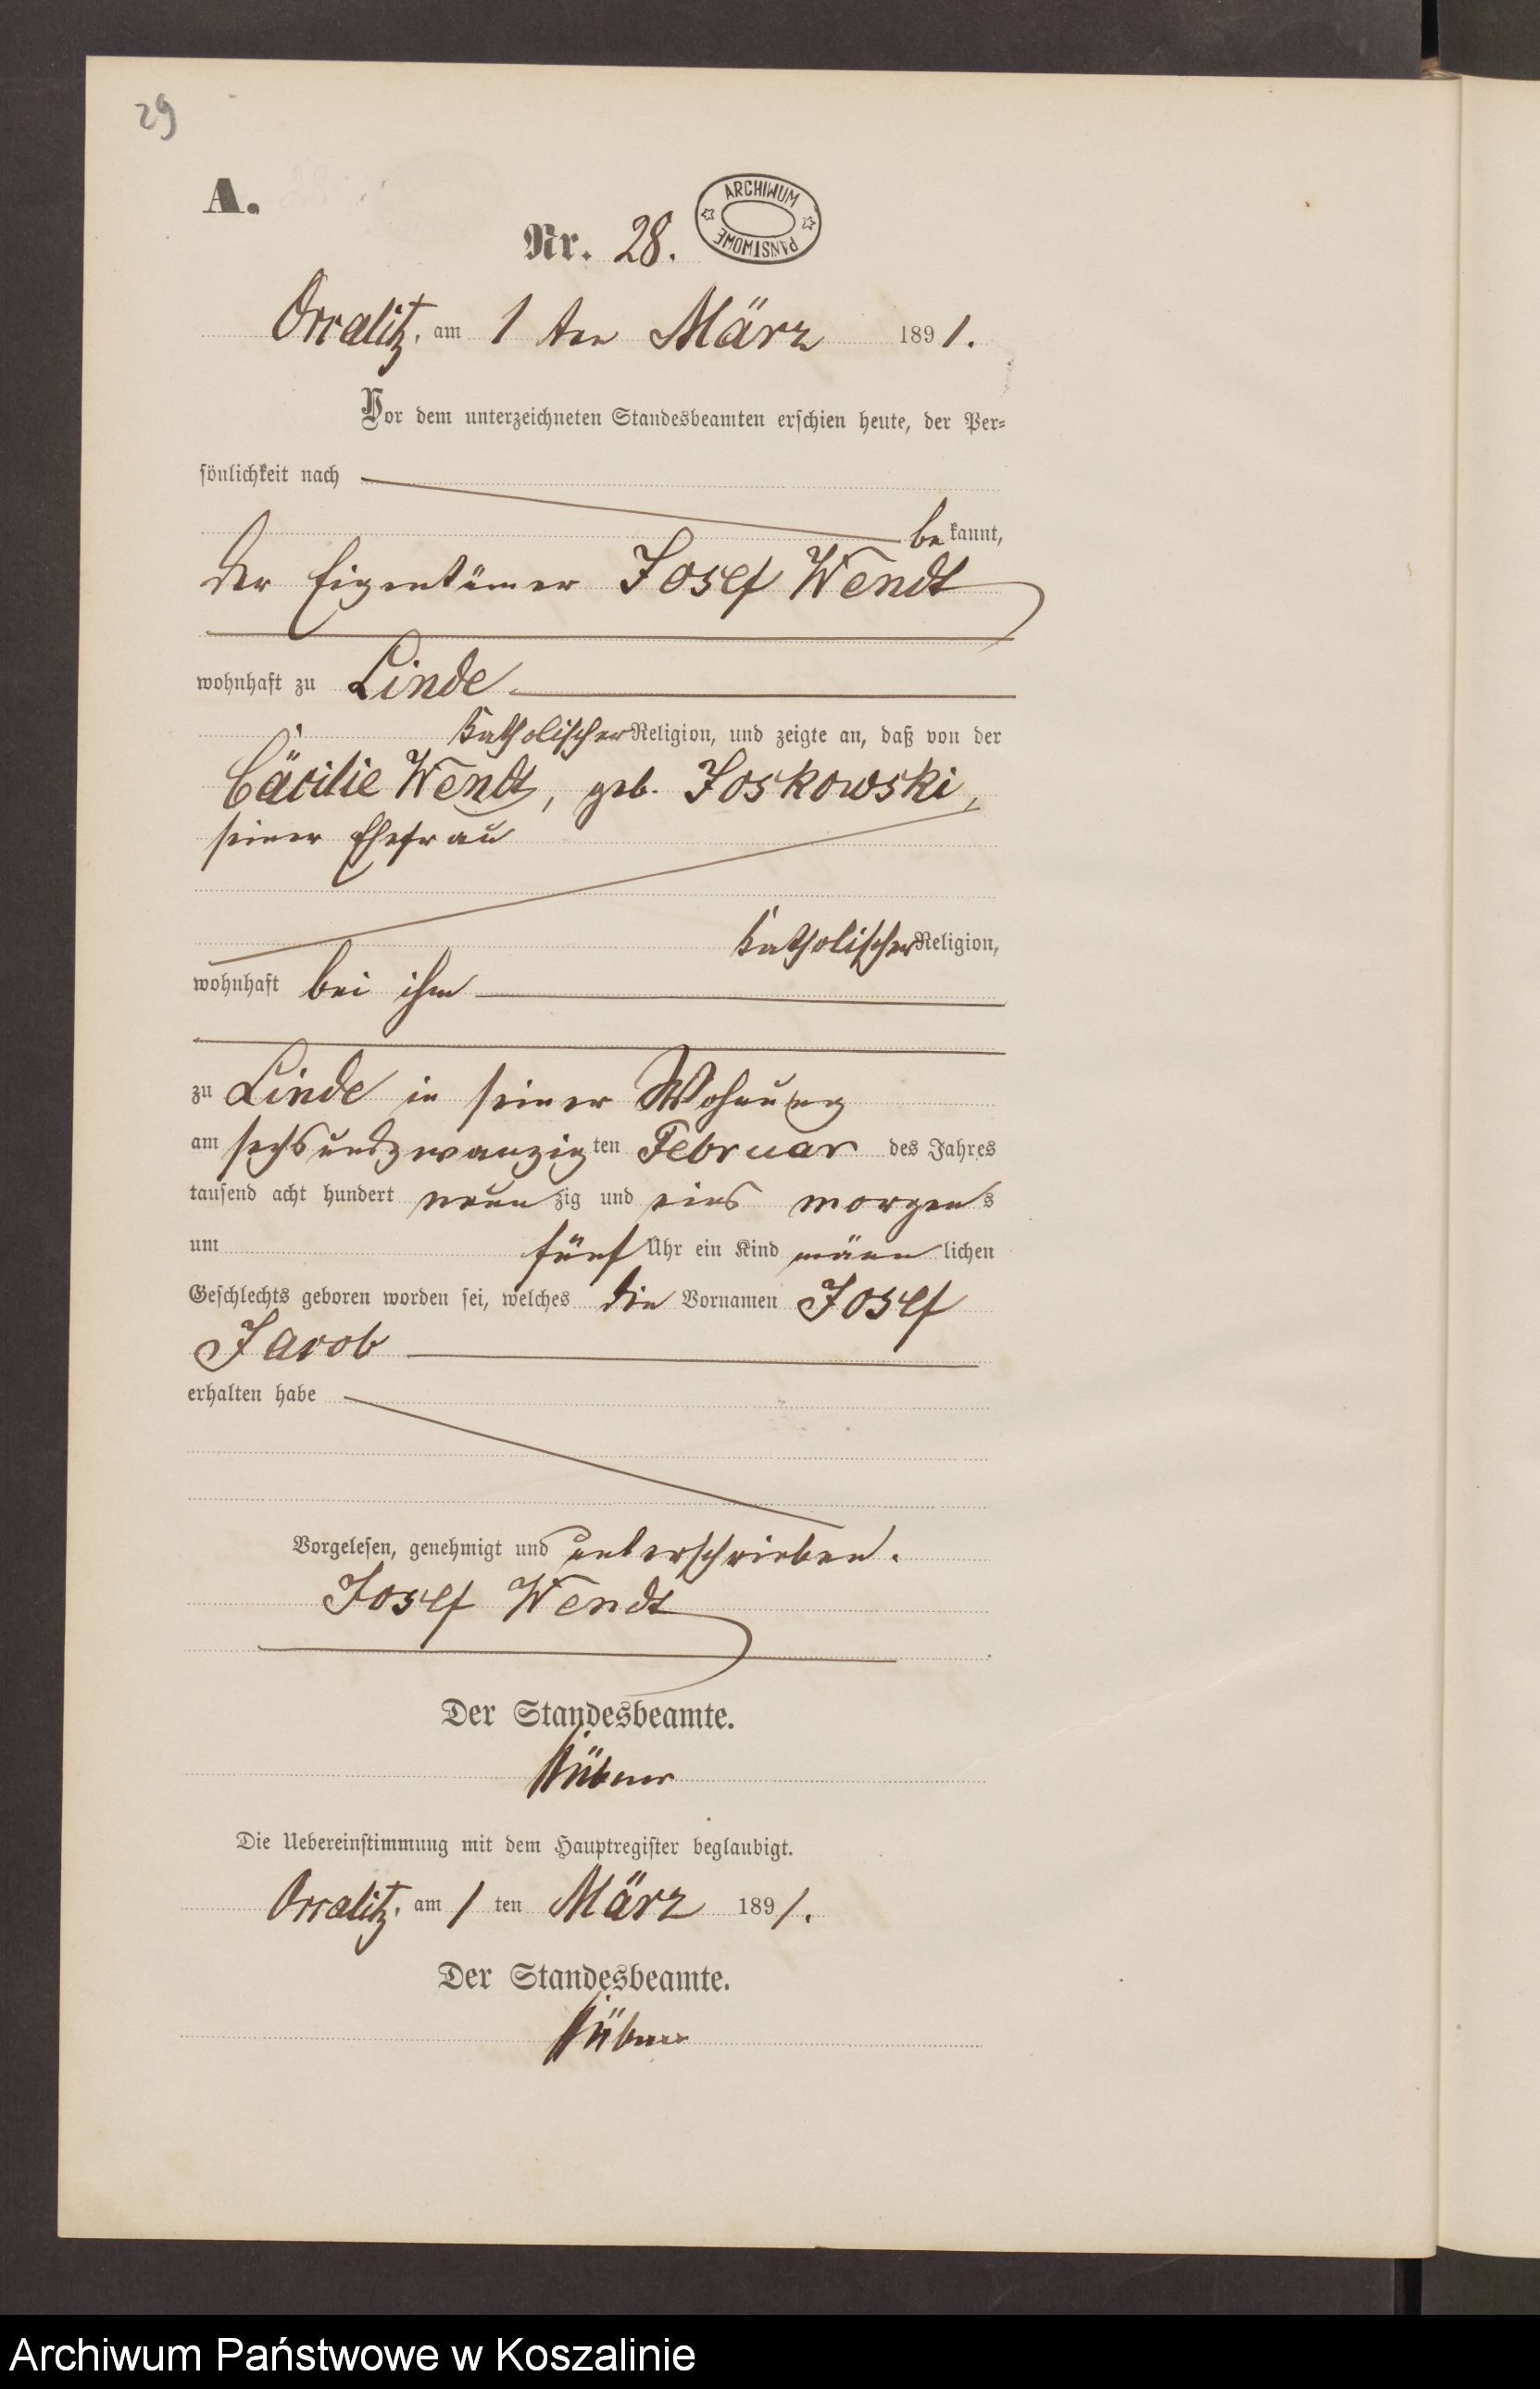 29
A.
ARCHIWUM PAŃSTWOWE
Nr. 28.
Ossalitz, am 1 ten März 1891.
Vor dem unterzeichneten Standesbeamten erschien heute, der Per=
sönlichkeit nach
bekannt,
der Eigentümer Josef Wendt
wohnhaft zu Linde
katholischer Religion, und zeigte an, daß von der
Cäcilie Wendt, geb. Joskowski,
seiner Ehefrau
katholischer Religion,
wohnhaft bei ihm
zu Linde in seiner Wohnung
am sechsundzwanzigten Februar des Jahres
tausend acht hundert neunzig und eins morgens
um fünf Uhr ein Kind männlichen
Geschlechts geboren worden sei, welches die Vornamen Josef
Jacob
erhalten habe
Vorgelesen, genehmigt und unterschrieben.
Josef Wendt
Der Standesbeamte.
Die Uebereinstimmung mit dem Hauptregister beglaubigt.
Ossalitz, am 1 ten März 1891.
Der Standesbeamte.
Archiwum Państwowe w Koszalinie